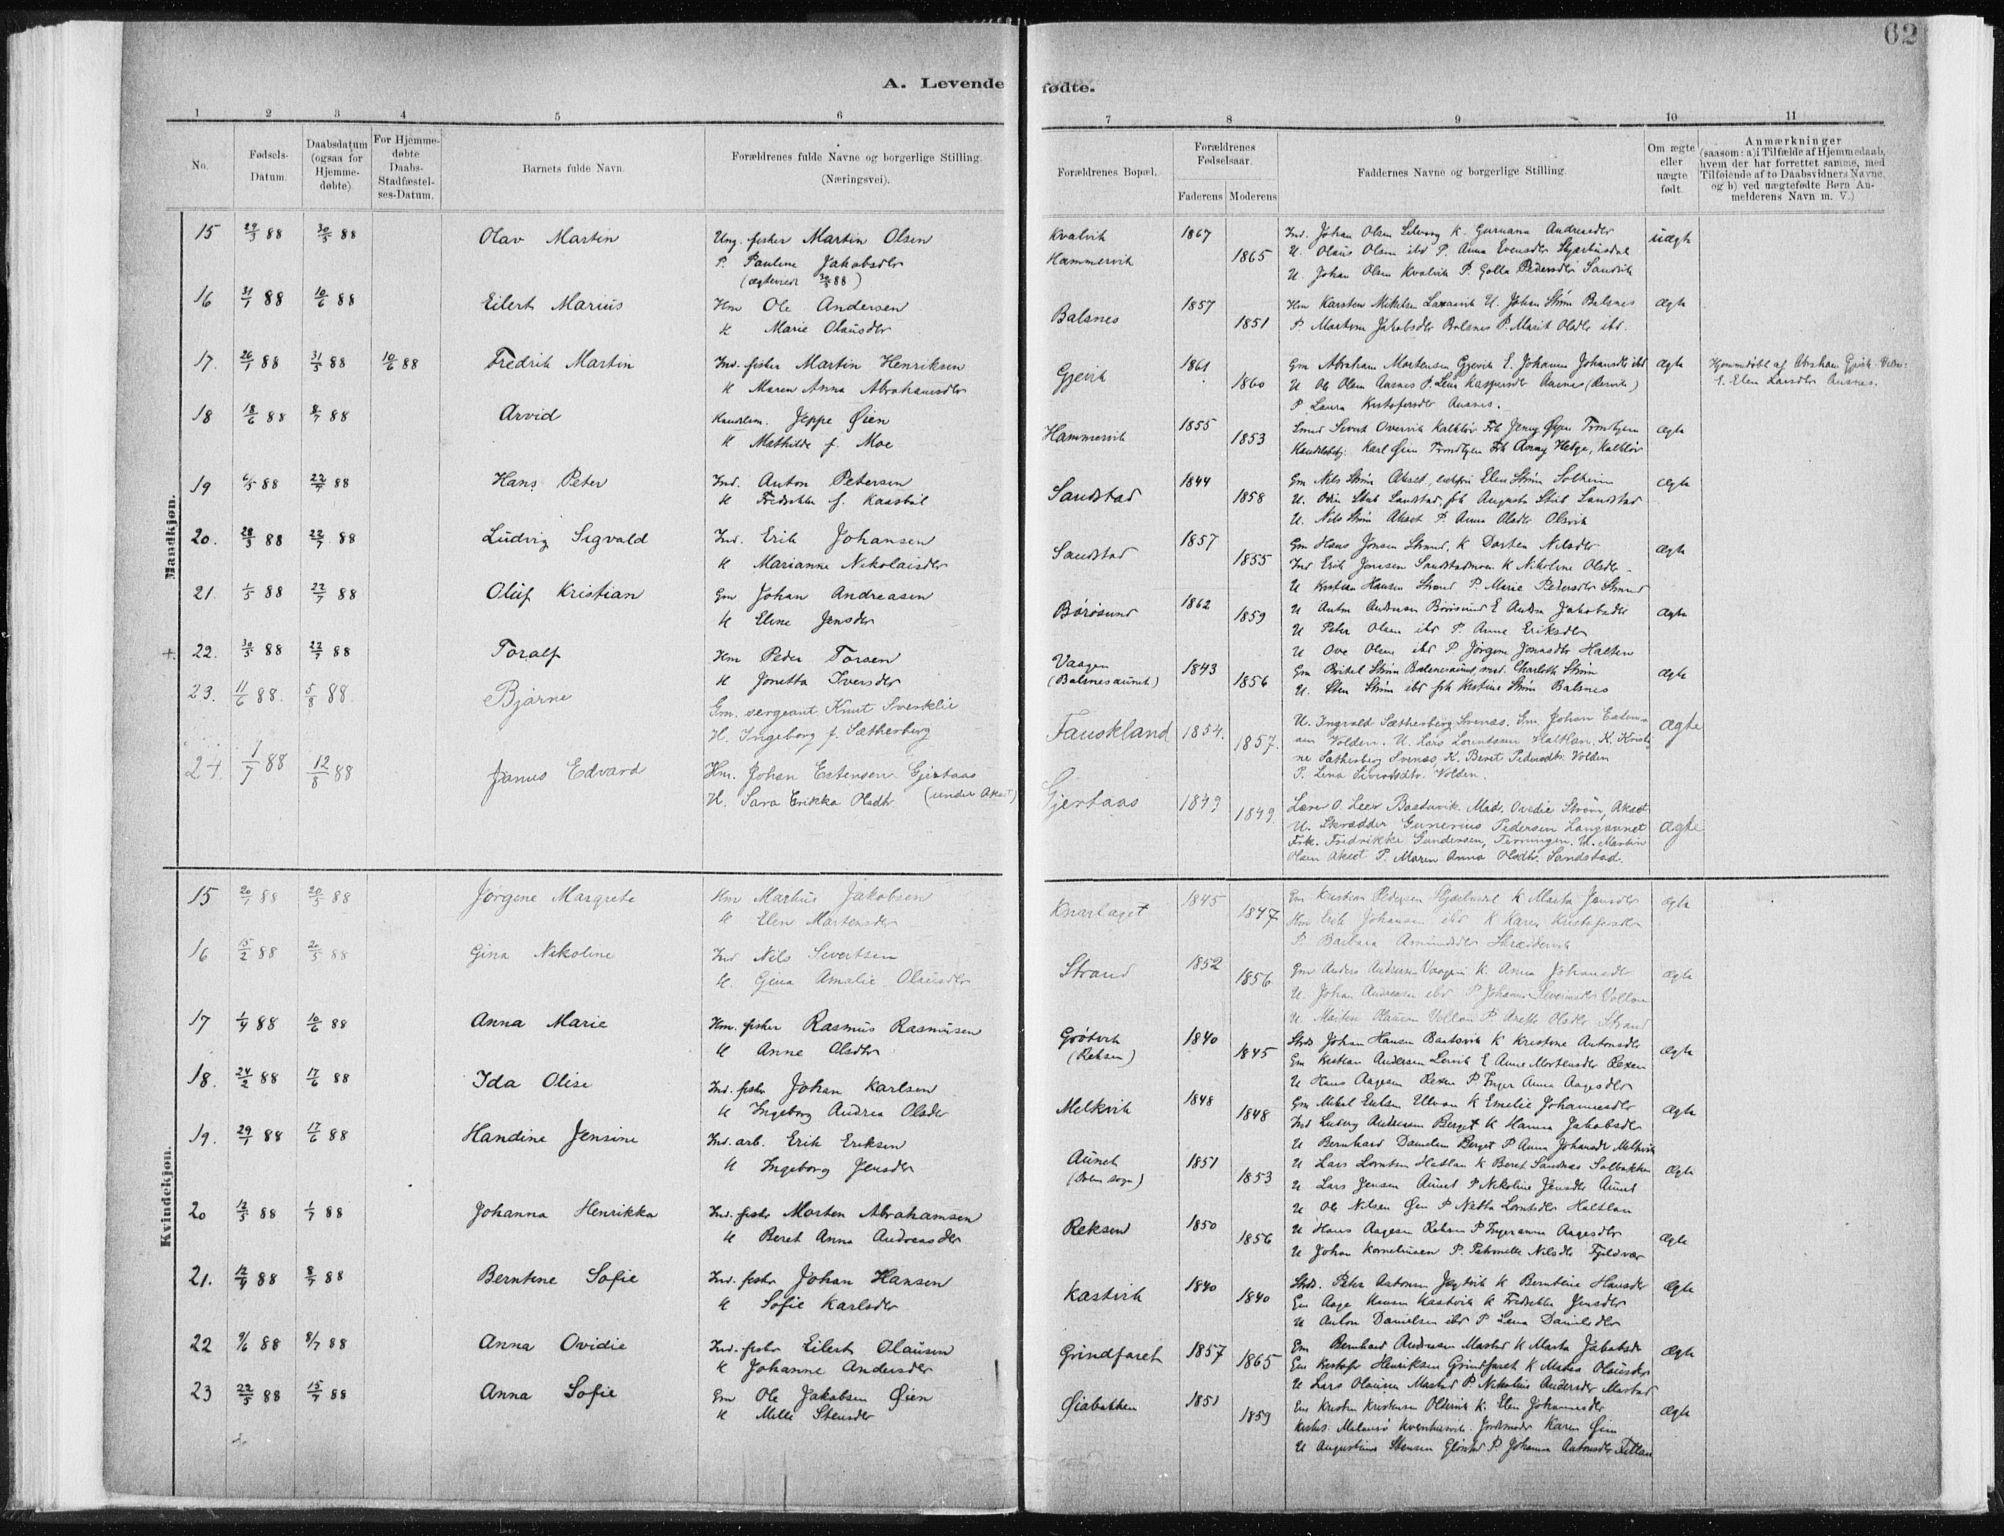 62
A. Levende fødte.
1 2 3 4 5 6 7 8 9 10 11
No. Fødsels-Datum. Daabsdatum (ogsaa for Hjemme-døbte). For Hjemme-døbte Daabs-Stadfæstel-ses-Datum. Barnets fulde Navn. Forældrenes fulde Navne og borgerlige Stilling. (Næringsvei). Forældrenes Bopæl. Forældrenes Fødselsaar. Faderens Moderens Faddernes Navne og borgerlige Stilling. Om ægte eller uægte født. Anmærkninger (saasom: a) i Tilfælde af Hjemmedaab, hvem der har forrettet samme, med Tilføiende af to Daabsvidners Navne, og b) ved uægtefødte Børn An-melderens Navn m. V.)
Mandkjøn.
15 29/3 88 30/5 88 Olav Martin Ung. fisker Martin Olsen Kvalvik 1867 Ind. Johan Olsen K. Guruana Andreasdr uægte
P. Pauline Jakobsdtr Hammervik 1865 U. Olaus Olsen ibd P. Anna
(ægteviet 30/5 88) U. Johan Olsen Kvalvik P. Golla Pedersdtr Sandvik
16 31/1 88 10/6 88 Eilert Marius Hm Ole Andersen Balsnes 1857 Hm Karsten Mikelsen U. Johan Strøm Balsnes ægte
K Marie Olausdtr 1851 P Jakobsdtr Balsnes P. Marit Olsdtr ibd.
17. 26/1 88 31/3 88 10/6 88 Fredrik Martin Ind. fisker Martin Henriksen Gjevik 1861 Gm Abraham Mortensen Gjevik E. Johanna ægte Hjemmedøbt af Abraham Gjevik.
K Maren Anna Abrahamsdtr 1860 U Ole Olsen Aasnes P. Lena Kaspersdtr 1. Elen Larsdtr Aasnes.
P. Laura Kristofersdtr Aasnes.
18 18/6 88 8/7 88 Arvid Handelsm. Jeppe Øien Hammervik 1855 Sivert Overvik Frk Jenny Øien Trondhjem ægte
K Mathilde f. Moe 1853 Karl Øien Trondhjem Frk
19 6/5 88 22/7 88 Hans Peter Ind. Anton Petersen Sandstad 1844 Gm Nils Strøm Akset, Elen Strøm ægte
K Fredrikke f. Kaasbøl 1858 U. Odin Stub Sandstad, frk Augusta Stub Sandstad
U. Nils Strøm Akset P. Anna Olsdtr Olsvik
20. 28/3 88 22/7 88 Ludvig Sigvald Ind. Erik Johansen Sandstad 1857 Gm Hans Jonsen Strand, K Nilsdtr ægte
K Marianne Nikolaisdtr 1855 Ind Erik Jonsen Sandstadmoen K Nikoline Olsdtr
U Kristian Hansen Strand P. Marie Pedersdtr Strand
21. 1/5 88 22/7 88 Oluf Kristian Gm Johan Andreasen Børøsund 1862 U Anton Andersen Børøsund E Jakobsdtr ægte
K Eline Jensdtr 1859 U Peter Olsen ibd P. Anne Eriksdtr
U Ove Olsen ibd P Jørgine Jonasdtr Halten
+ 22. 30/5 88 22/7 88 Toralf Hm Peder Torsen Vaagen 1843 Gm Strøm Charlotte Strøm ægte
K Jonetta Iversdtr (Balsnesaunet) 1856 U. Sten Strøm ibd frk Kristine Strøm Balsnes
23. 11/6 88. 5/8 88. Bjarne Gm. sergeant Knut Svenklie Fauskland 1854. U. Ingvald Sætherberg Svenæs. Gm. Johan ægte
H. Ingeborg f. Sætherberg. 1857. Volden. U. Lars Lorentsen Haltlan. K.
Sætherberg Svenæs, K. Beret Pedersdtr. Volden
P. Lena Sivertsdtr. Volden.
24 1/7 88 12/8 88 Janus Edvard Hm. Johan Estensen Gjertaas Gjertaas 1849 Lærer O. Leer Bastuvik. Mad. Ovedie Strøm, Akset ægte
H. Sara Erikka Olsdtr. (under Akset) 1849. U. Skrædder Gunerius Pedersen Langaunet
Frk. Fredrikke Gundersen, Terningen. U. Martin
Olsen Akset P. Maren Anna Olsdtr. Sandstad.
Kvindekjøn.
15 20/1 88 20/5 88 Jørgene Margrete Hm Markus Jakobsen Knarlaget 1845 Gm Kristian Pedersen K Marta Jensdtr ægte
K Elen Martensdtr 1847 Hm Erik Johansen ibd K Karen Kristofersdtr
P Barbara Amundsdtr
16 15/2 88 20/5 88 Gina Nikoline Ind Nils Sivertsen Strand 1852 Gm Anders Andersen Vaagen K. Anna Johansdtr ægte
K. Gina Amalie Olausdtr 1856 U. Johan Andreasen ibd P Johanna Vollan
U Morten Olausen Vollan P. Olsdtr Strand
17 1/4 88 10/6 88 Anna Marie Hm. fisker Rasmus Rasmusen Grøtvik 1840 Johan Hansen Bastuvik K Kristine Antonsdtr ægte
K Anne Olsdtr (Reksen) 1845 Gm Kristian Andersen Lervik E Anne Mortensdtr Rexen
U Hans Aagesen Rexen P Inger Anna Aagesdtr
18. 24/2 88 17/6 88 Ida Olise Ind. fisker Johan Karlsen Melkvik 1848 Gm Mikal Ulvan K Emelie Johannesdtr ægte
K Ingeborg Andrea Olsdtr 1848 Ind Ludvig Andersen Berget K Hanna Jakobsdtr
U Bernhard Danielsen Berget P Anna Johansdtr Melkvik
19. 29/1 88 17/6 88 Handine Jensine Ind. arb. Erik Eriksen Aunet 1851 U Lars Lorntsen Hatlan K Beret Sandnes Solbakken ægte
K Ingeborg Jensdtr 1853 U Lars Jensen Aunet P Nikoline Jensdtr Aunet
U Ole Nilsen Øien P Netta Lorntsdtr Haltlan
20 12/3 88 1/7 88 Johanna Henrikka Ind. fisker Morten Abrahamsen Reksen 1850 U Hans Aagesen Reksen P Ingeranna Aagesdtr ægte
K Beret Anna Andreasdtr 1856 U Johan Korneliussen P. Petrnelle Nilsdtr Fjeldvær
21. 12/4 88 8/7 88 Berntine Sofie Ind. fisker Johan Hansen Kastvik 1840 Peter Antonsen K Berntine Hansdtr ægte
K Sofie Karlsdtr 1840 Gm Aage Hansen Kastvik K Fredrikke Jensdtr
U Anton Danielsen ibd P Lena Danielsdtr
22 9/6 88 8/7 88 Anna Ovidie Ind. fisker Eilert Olausen Grindfaret 1857 Gm Bernhard Andersen Mastad K Marta Jakobsdtr ægte
K Johanne Andersdtr 1865 Gm Kristofer Henriksen Grindfaret K Olausdtr
U Lars Olausen Mastad P Nikoline Andersdtr Mastad
23 22/5 88 15/7 88 Anna Sofie Gm Ole Jakobsen Øien Øiabakken 1851 Gm Kristen Kristensen K. Elen Johannesdtr ægte
K Milli Stensdtr 1859 Jordmoder Karen Øien
U Augustinus Stensen P Johanna Antonsdtr Fillan